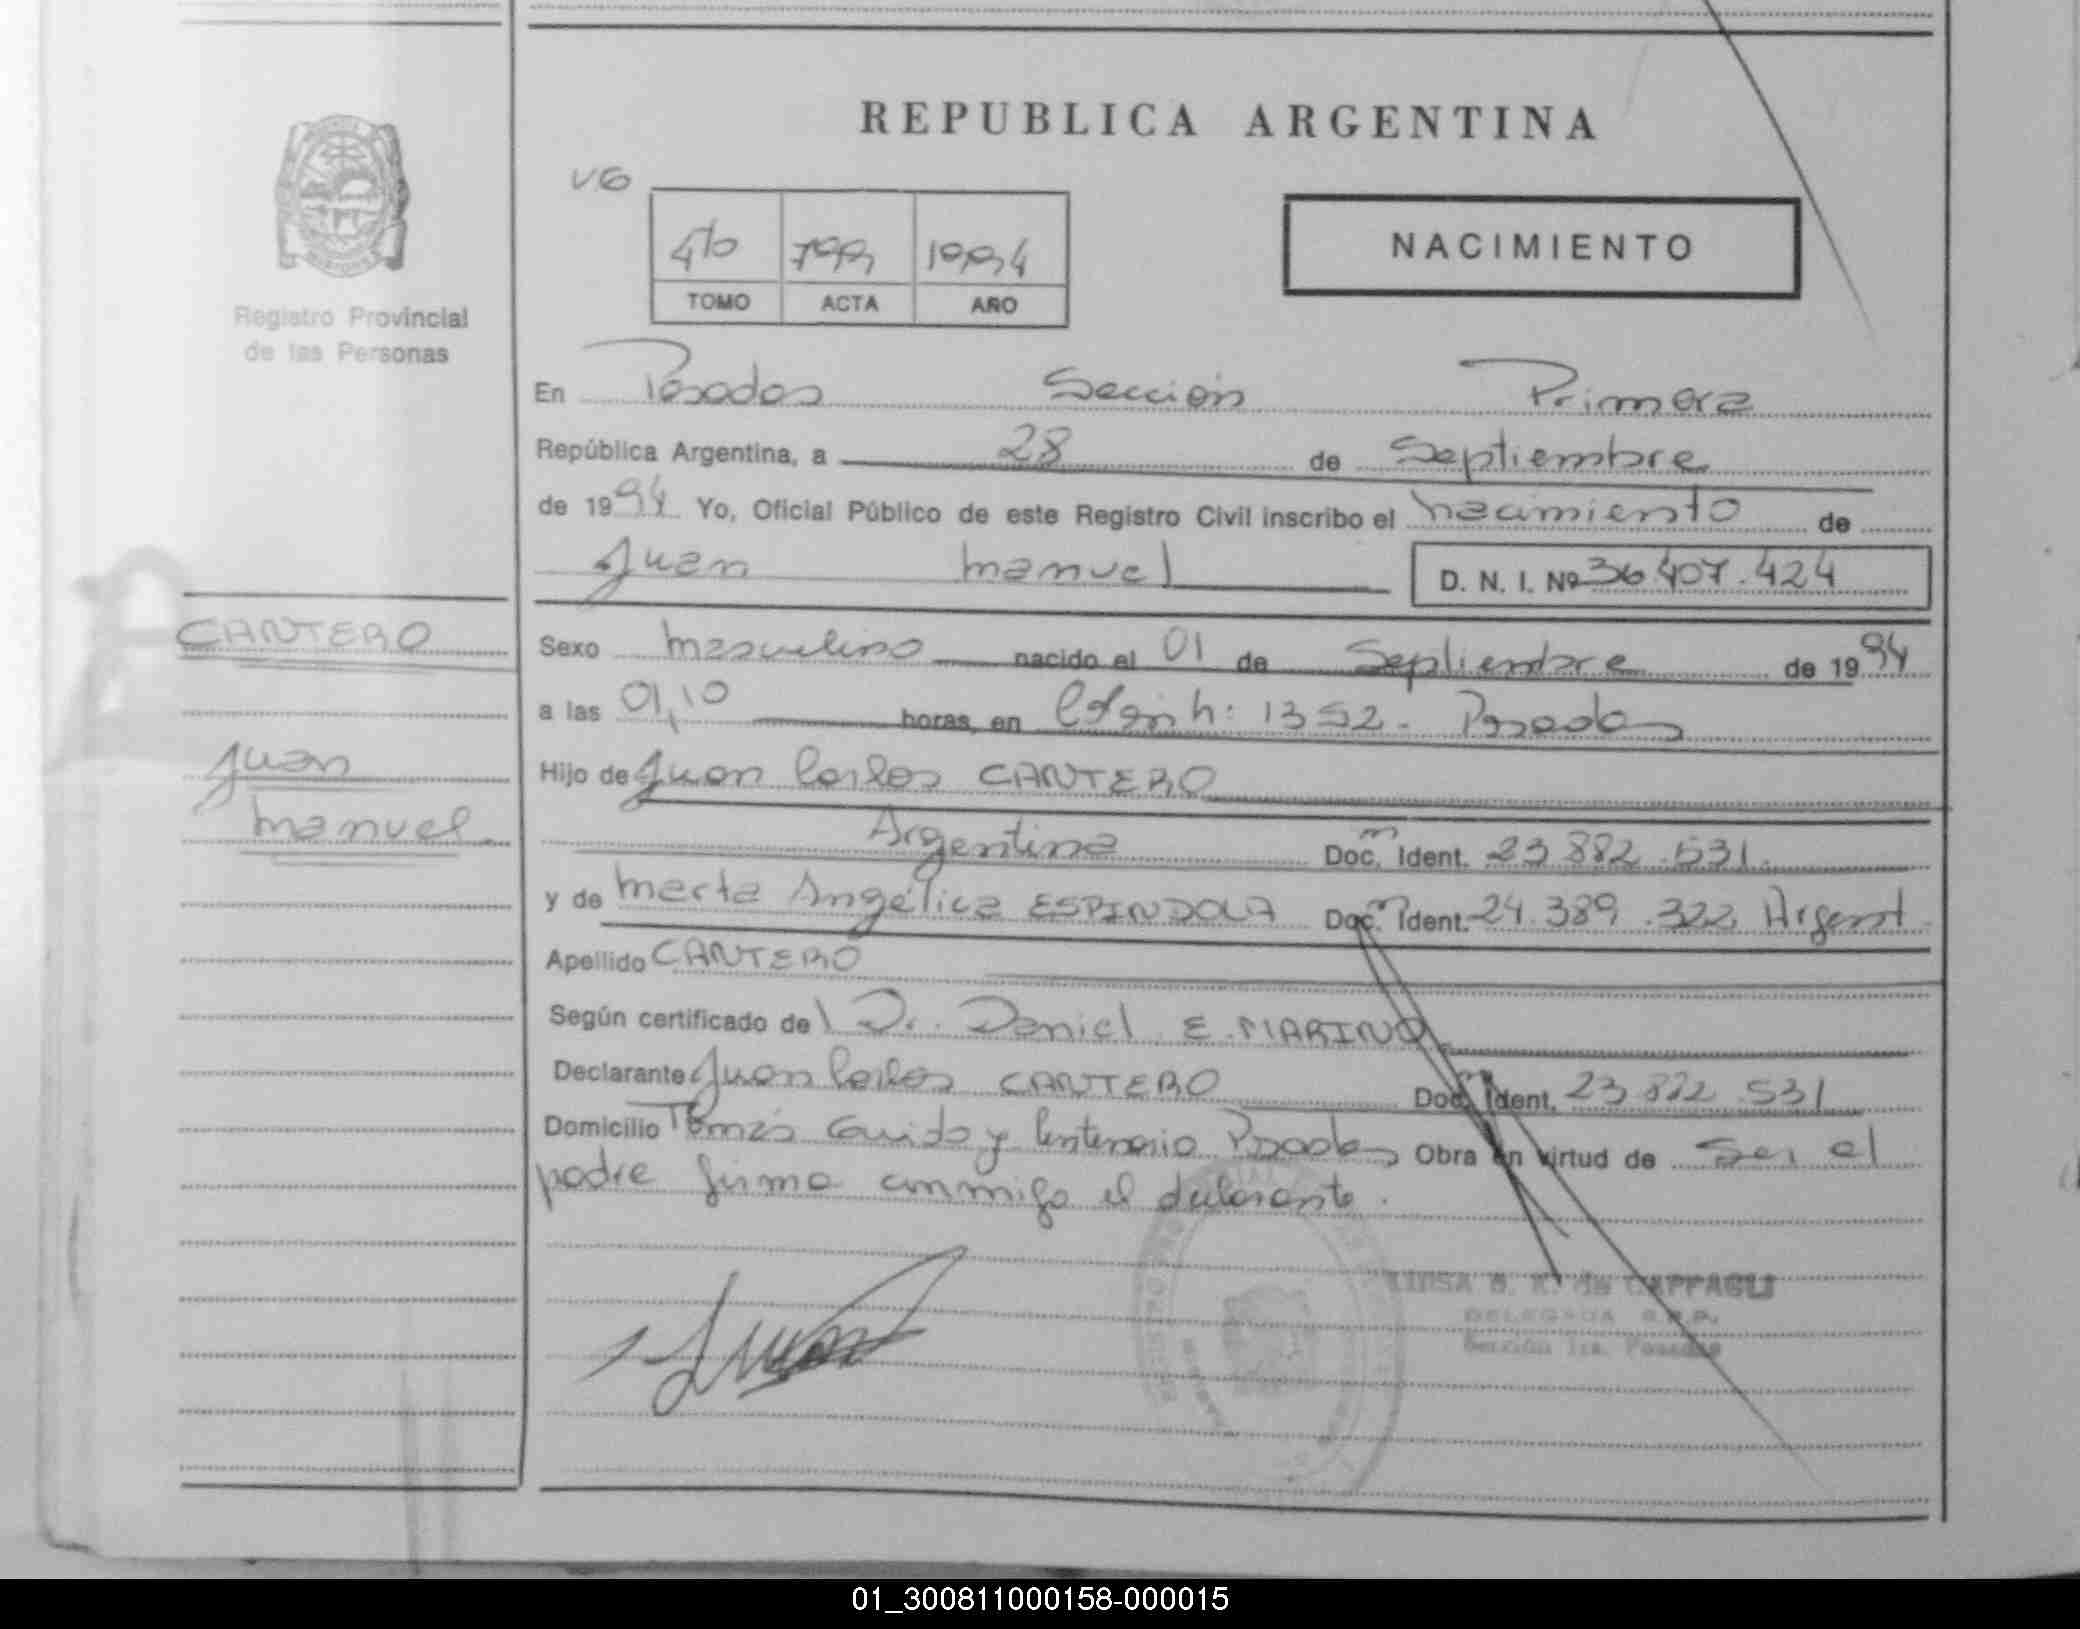 REPUBLICA ARGENTINA
VG
4to 799 1994
TOMO ACTA AÑO
NACIMIENTO
Registro Provincial
de las Personas
En Posadas Sección Primera
República Argentina, a 28 de Septiembre
de 1994 Yo, Oficial Público de este Registro Civil inscribo el nacimiento de
Juan Manuel D. N. I. Nº 36.407.424
CANTERO
Juan
Manuel
Sexo Masculino nacido el 01 de Septiembre de 1994
a las 01,10 horas, en 1352. Posadas
Hijo de Juan Carlos CANTERO
Argentina Doc. Ident. 23.882.531.
y de Marta Angélica ESPINDOLA Doc. Ident. 24.389.322 Argent.
Apellido CANTERO
Según certificado de Dr. Daniel E. MARINO
Declarante Juan Carlos CANTERO Doc. Ident. 23.882.531
Domicilio Tomás Guido y Centenario Posadas Obra en virtud de ser el
padre firma conmigo el declarante.
de CAPPAGLI
DELEGADA R.P.P.
Sección 1ra. Posadas
01_300811000158-000015